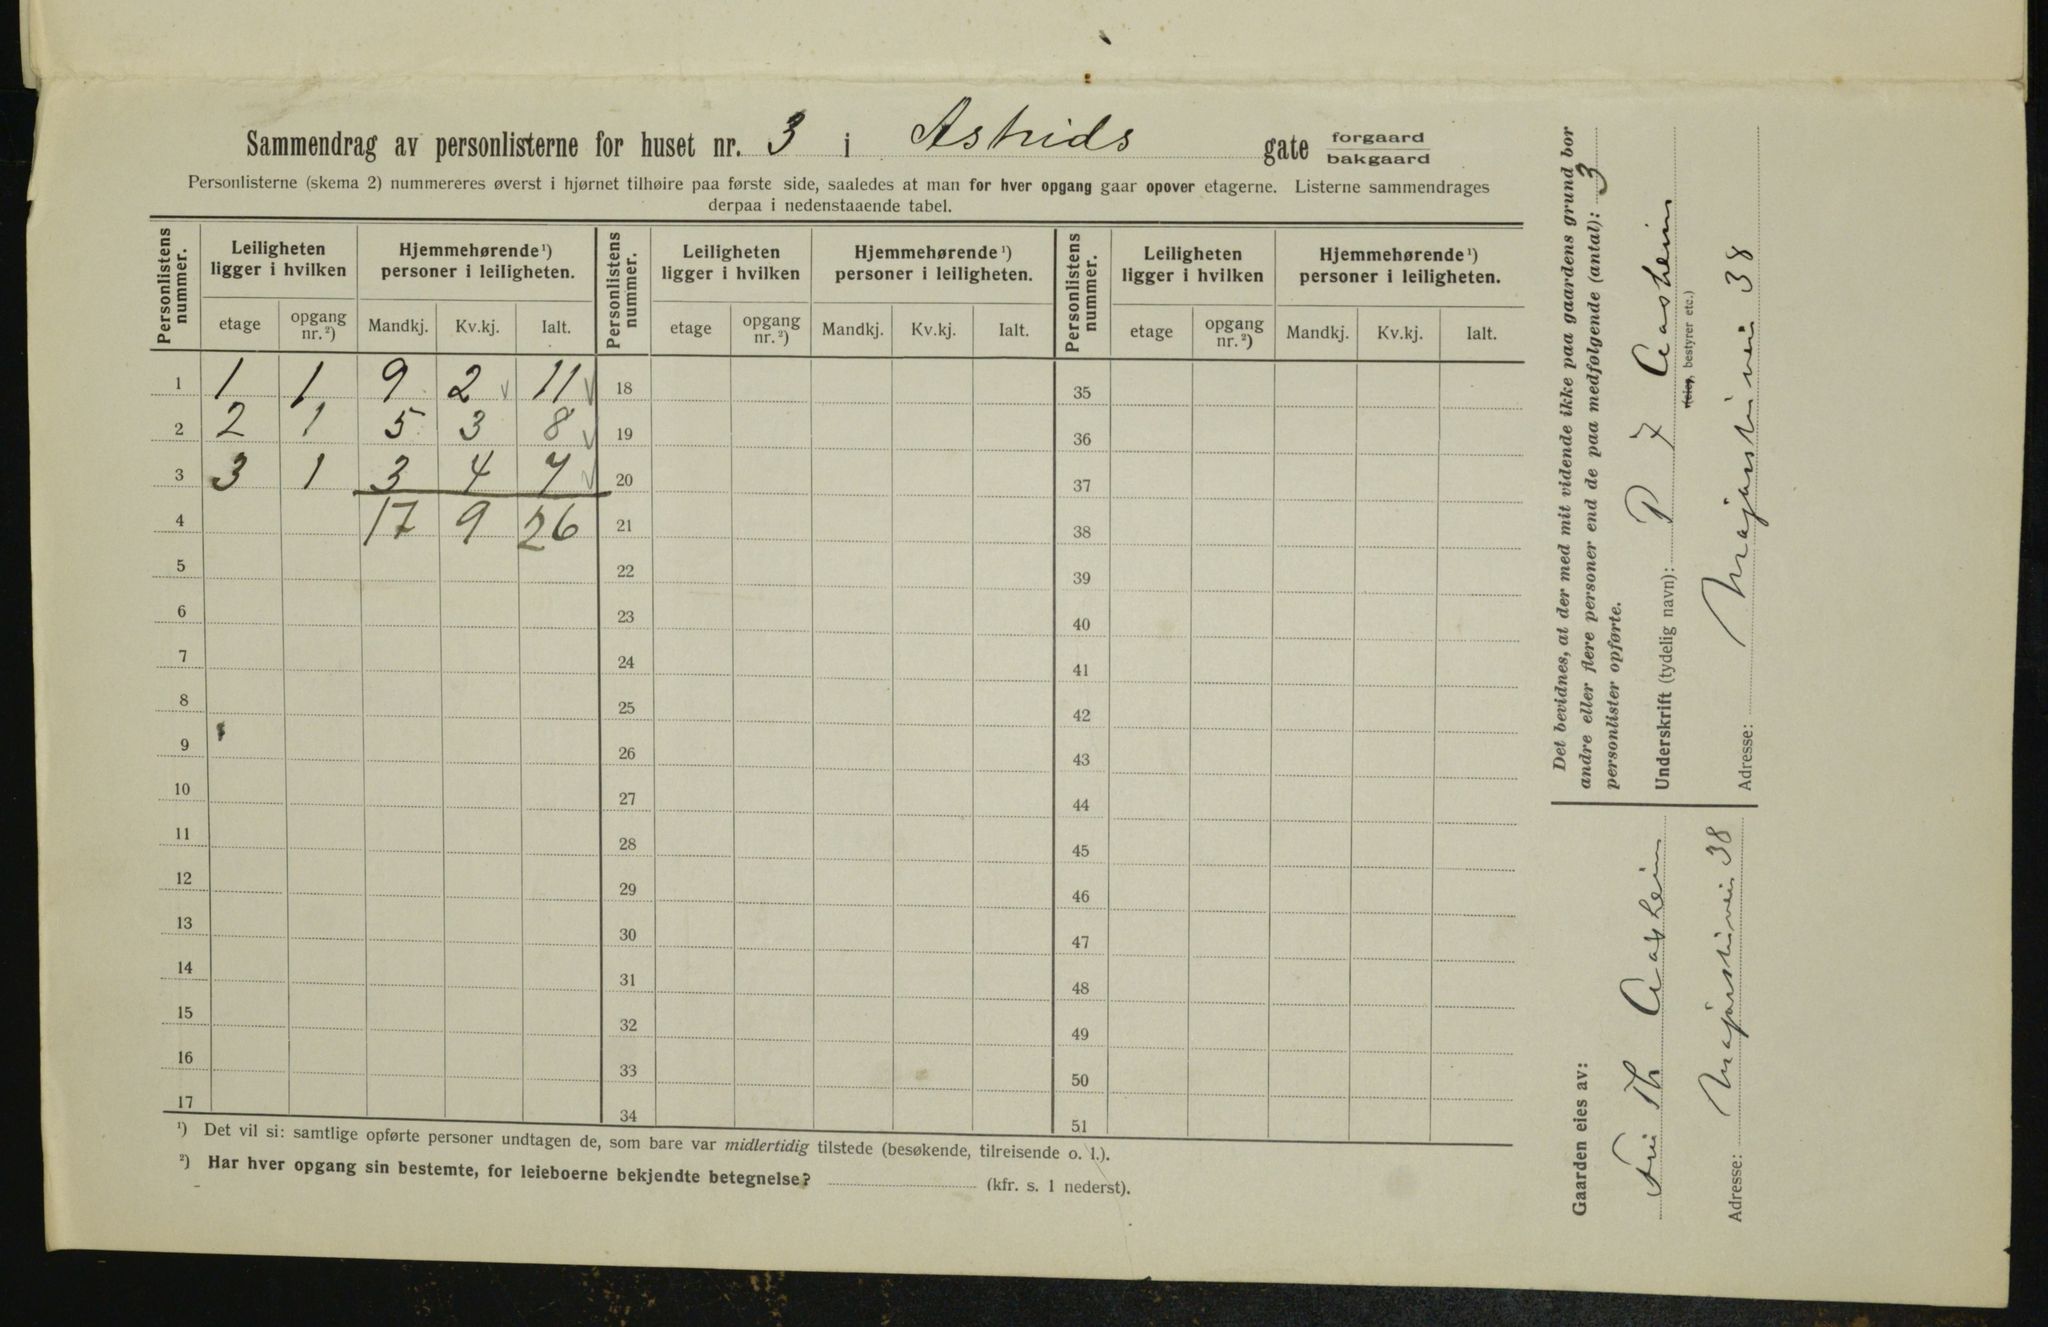 Sammendrag av personlisterne for huset nr. 3 i Astrids gate forgaard
bakgaard
Personlisterne (skema 2) nummereres øverst i hjørnet tilhøire paa første side, saaledes at man for hver opgang gaar opover etagerne. Listerne sammendrages
derpaa i nedenstaaende tabel.
Personlistens nummer. Leiligheten ligger i hvilken Hjemmehørende ¹) personer i leiligheten. Personlistens nummer. Leiligheten ligger i hvilken Hjemmehørende ¹) personer i leiligheten. Personlistens nummer. Leiligheten ligger i hvilken Hjemmehørende ¹) personer i leiligheten.
etage opgang nr. ²) Mandkj. Kv.kj. Ialt. etage opgang nr. ²) Mandkj. Kv.kj. Ialt. etage opgang nr. ²) Mandkj. Kv.kj. Ialt.
1 1 1 9 2 11 18 35
2 2 1 5 3 8 19 36
3 3 1 3 4 7 20 37
4 17 9 26 21 38
5 22 39
6 23 40
7 24 41
8 25 42
9 26 43
10 27 44
11 28 45
12 29 46
13 30 47
14 31 48
15 32 49
16 33 50
17 34 51
¹) Det vil si: samtlige opførte personer undtagen de, som bare var midlertidig tilstede (besøkende, tilreisende o. l.).
²) Har hver opgang sin bestemte, for leieboerne bekjendte betegnelse? (kfr. s. 1 nederst).
Det bevidnes, at der med mit vidende ikke paa gaardens grund bor
andre eller flere personer end de paa medfølgende (antal): 3
personlister opførte.
Underskrift (tydelig navn): P 7 Aasheim
(eier, bestyrer etc.)
Adresse: Majorstuvei 38
Gaarden eies av:
Th Aasheim
Adresse: Majorstuvei 38